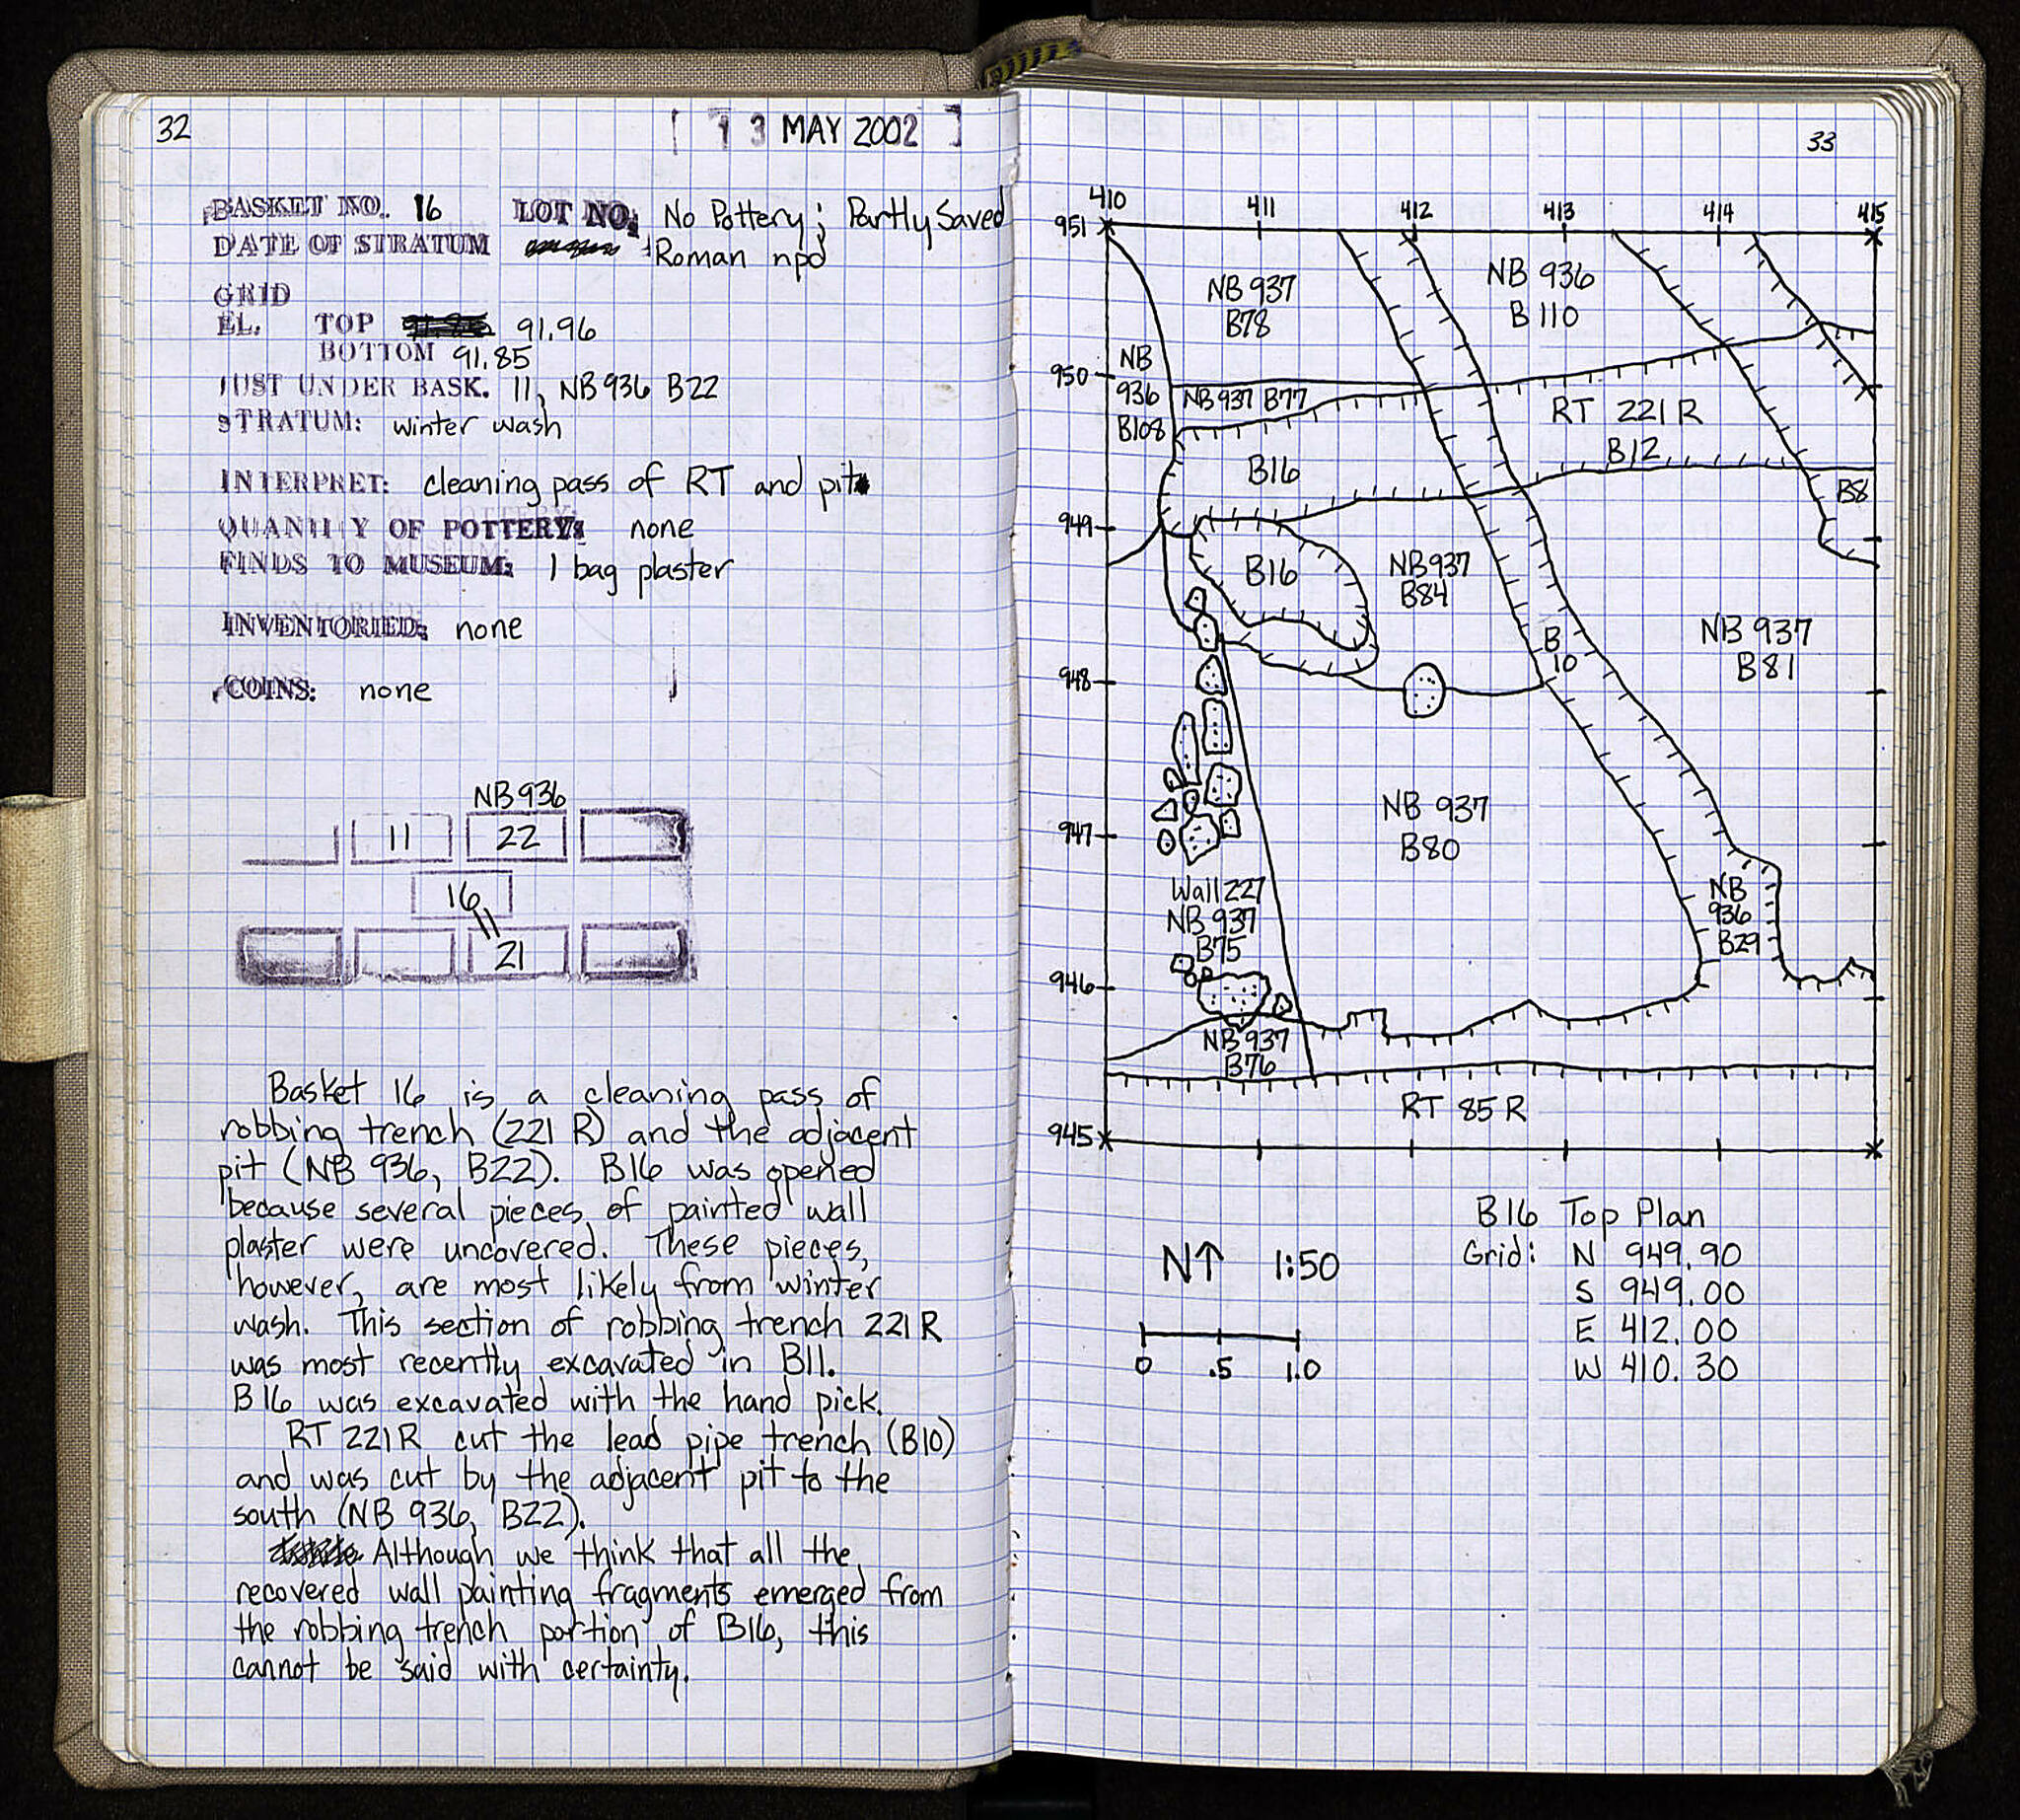 32
13 MAY 2002
BASKET NO. 16 LOT NO. No Pottery; Partly Saved
DATE OF STRATUM Roman npd
GRID
EL. TOP 91.96
BOTTOM 91.85
JUST UNDER BASK. 11, NB 936 B22
STRATUM: winter wash
INTERPRET: cleaning pass of RT and pit
QUANTITY OF POTTERY: none
FINDS TO MUSEUM: 1 bag plaster
INVENTORIED: none
COINS: none
NB 936
11 22
16
21
Basket 16 is a cleaning pass of
robbing trench (221 R) and the adjacent
pit (NB 936, B22). B16 was opened
because several pieces of painted wall
plaster were uncovered. These pieces,
however, are most likely from winter
wash. This section of robbing trench 221 R
was most recently excavated in B11.
B16 was excavated with the hand pick.
RT 221R cut the lead pipe trench (B10)
and was cut by the adjacent pit to the
south (NB 936, B22).
Although we think that all the
recovered wall painting fragments emerged from
the robbing trench portion of B16, this
cannot be said with certainty.
33
410 411 412 413 414 415
951
NB 937
B78
NB 936
B110
950
NB
936
B108
NB 937 B77
RT 221 R
B12
B16
B8
949
B16
NB 937
B84
B
10
NB 937
B81
948
NB 937
B80
947
Wall 227
NB 937
B75
NB
936
B29
946
NB 937
B76
RT 85 R
945
B16 Top Plan
Grid: N 949.90
S 949.00
E 412.00
W 410.30
N↑ 1:50
0 .5 1.0